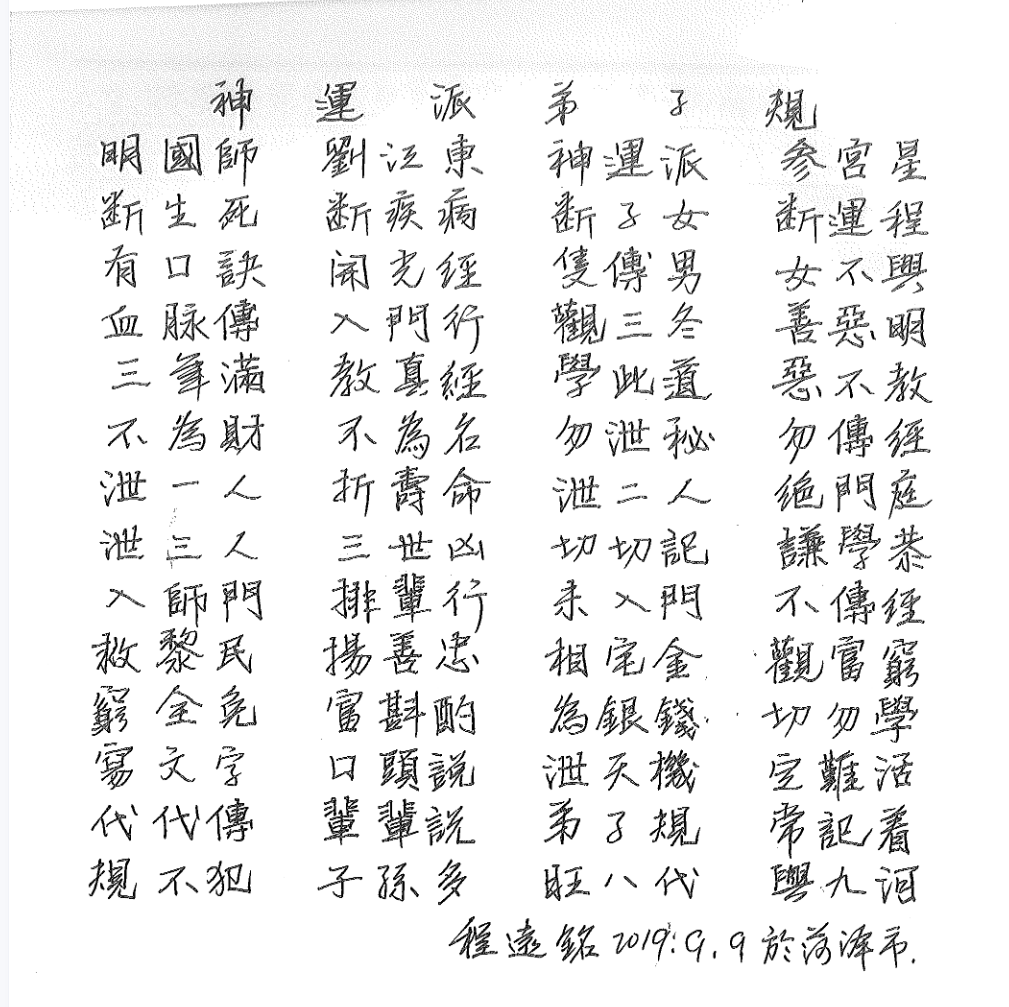 神運派弟子規
明國師 劉江東 神運派 参宮星
断生死 断疾病 断子女 断運程
有口訣 開光經 隻傳男 女不與
血脉傳 入門行 觀三冬 善惡明
三年滿 教真經 學此道 惡不教
不為財 不為名 勿泄秘 勿傳經
泄一人 折壽命 泄二人 绝門庭
泄三人 三世凶 切切記 謙學恭
入師門 排輩行 未入門 不傳經
救黎民 揚善忠 相宅金 觀富窮
窮全免 富斟酌 為銀錢 切勿學
寫文字 口頭説 泄天機 定難活
代代傳 輩輩説 弟子規 常記着
規不犯 子孫多 旺八代 與九河
程遠銘2019.9.9於菏泽市.